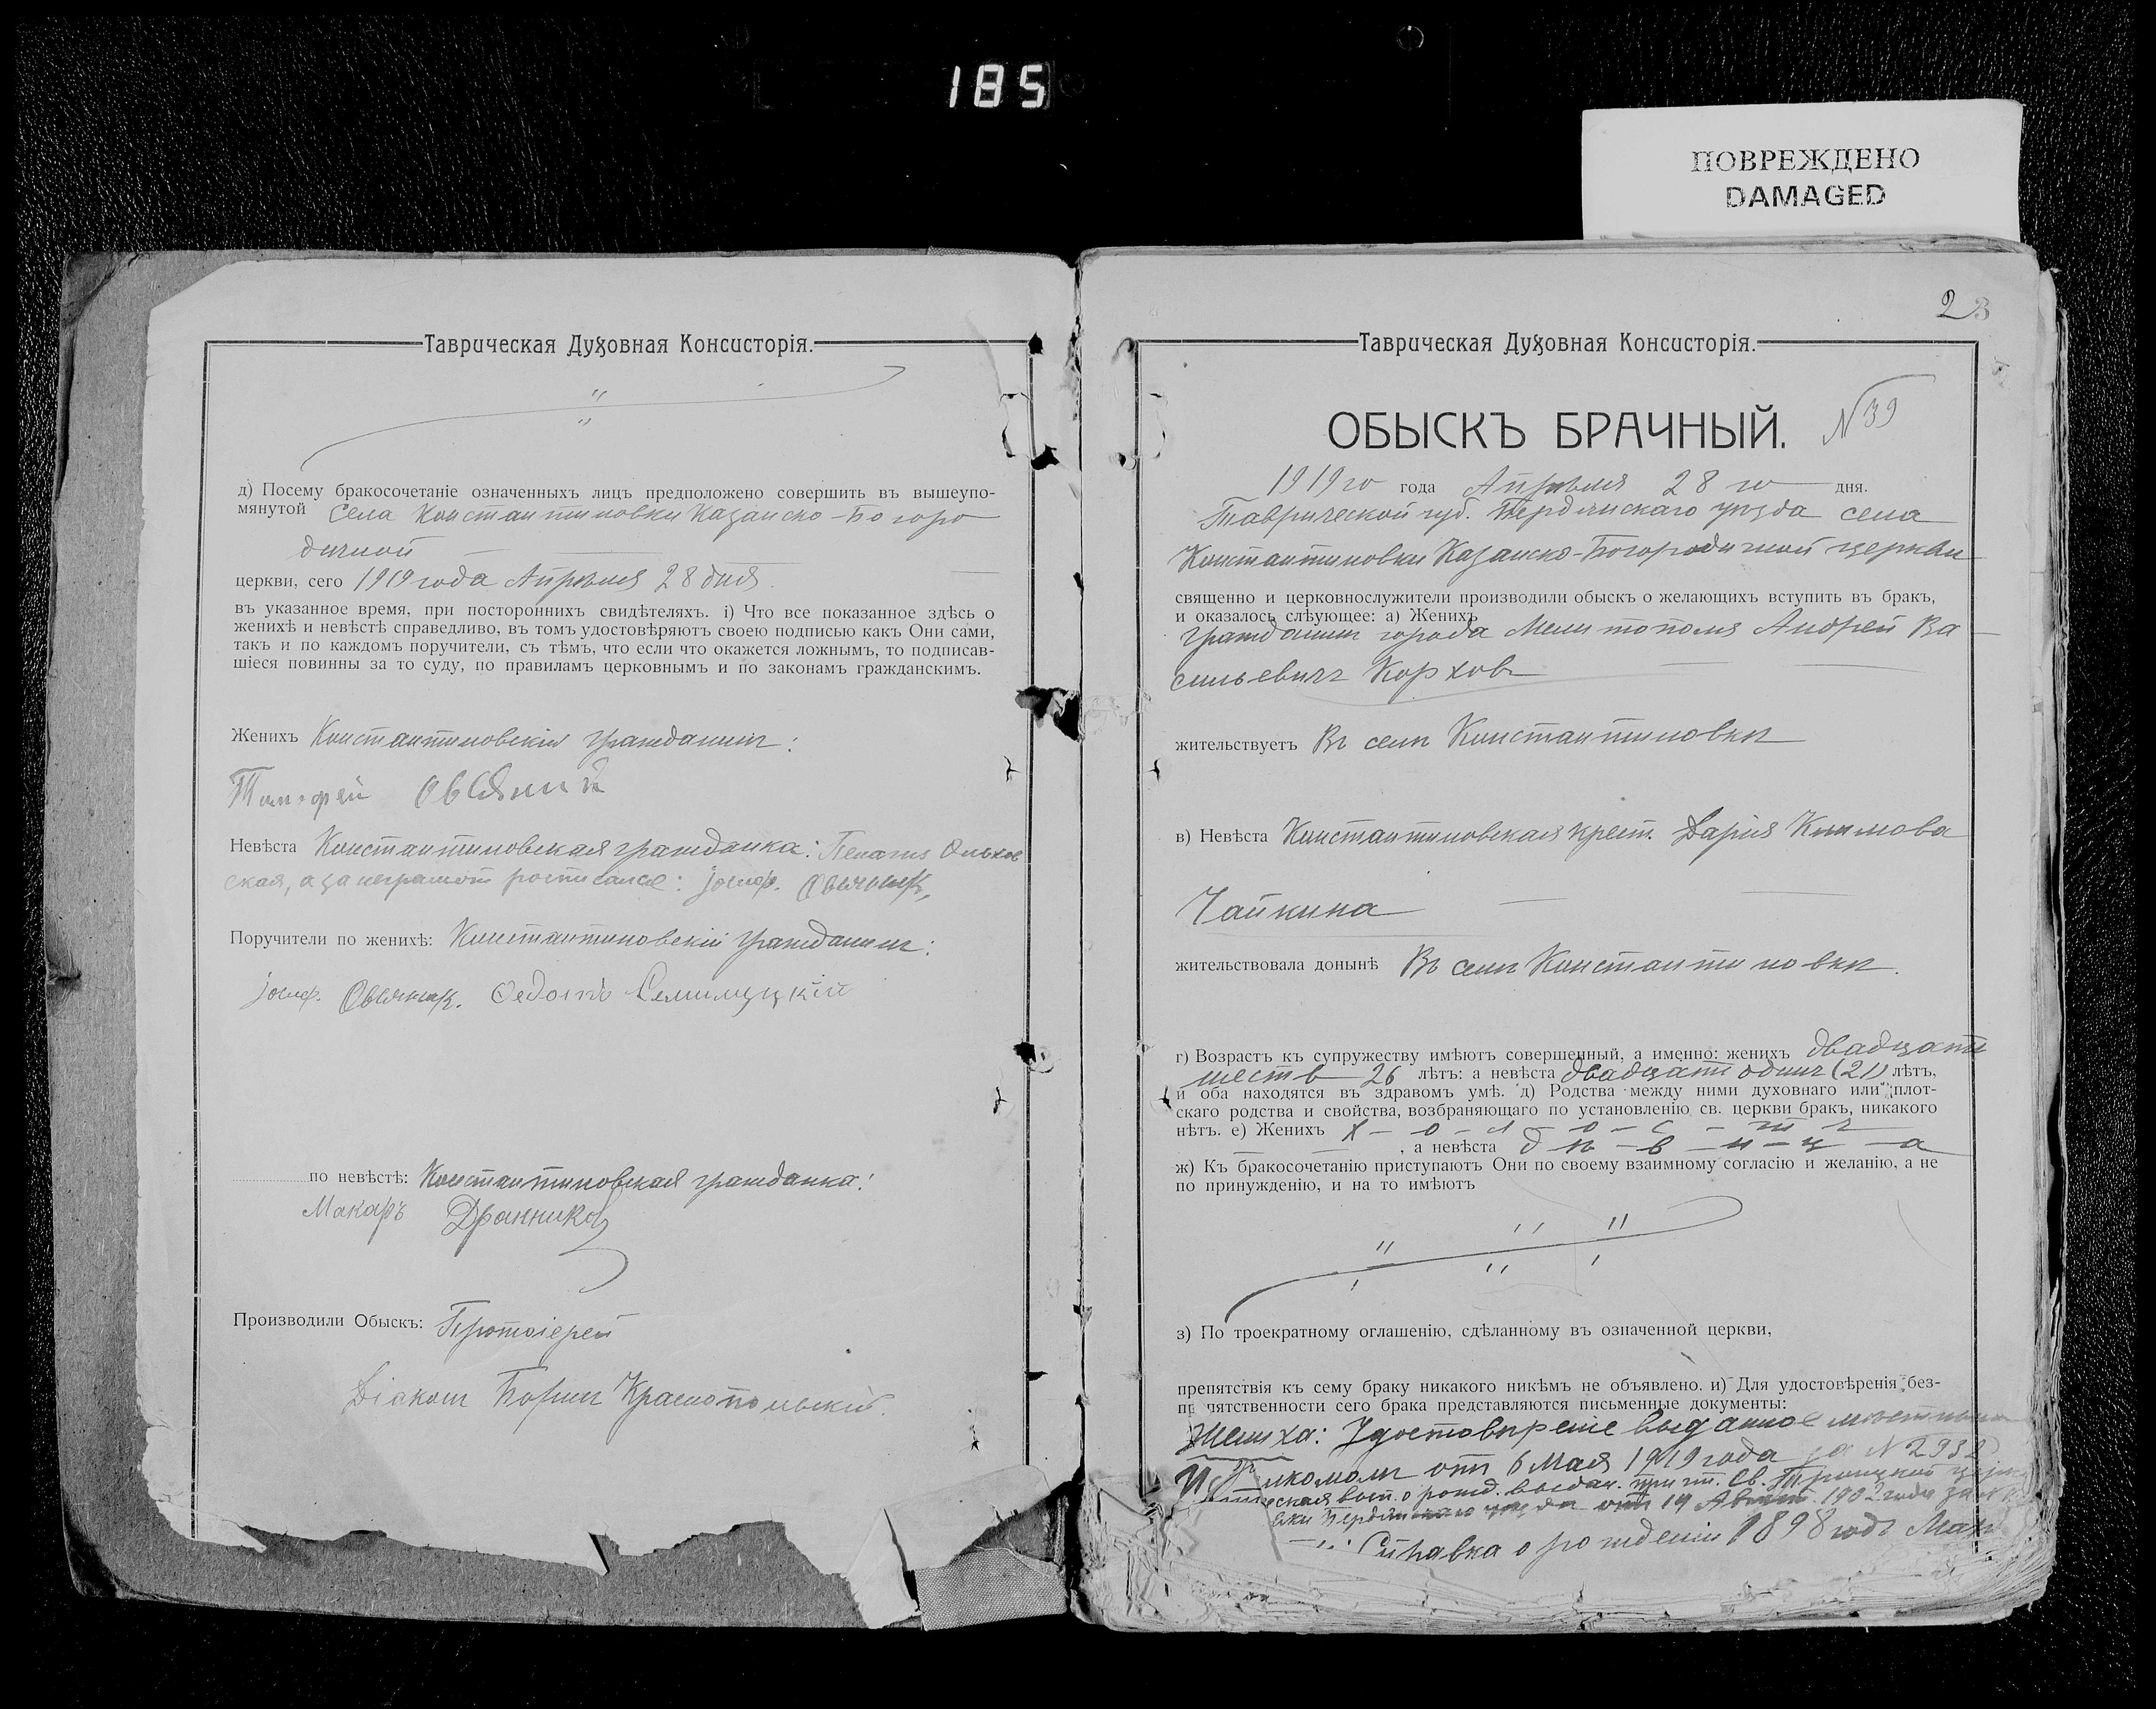 185
ПОВРЕЖДЕНО
DAMAGED
Таврическая Духовная Консисторія.
д) Посему бракосочетаніе означенныхъ лицъ предположено совершить въ вышеупо-
мянутой села Константиновки Казанско-Богоро
дичной
церкви, сего 1919 года Апрѣля 28 дня.
въ указанное время, при постороннихъ свидѣтеляхъ. і) Что все показанное здѣсь о
женихѣ и невѣстѣ справедливо, въ томъ удостовѣряютъ своею подписью какъ Они сами,
такъ и по каждомъ поручители, съ тѣмъ, что если что окажется ложнымъ, то подписав-
шіеся повинны за то суду, по правиламъ церковнымъ и по законамъ гражданскимъ.
Женихъ Константиновскій гражданинъ:
Тимофей
Невѣста Константиновская гражданка: Пелагия Ольхов
ская, а за неграмот росписался: Іосиф.
Поручители по женихѣ: Константиновскій гражданинъ:
Іосиф. Федотъ
по невѣстѣ: Константиновская гражданка:
Макаръ Дранников
Производили Обыскъ: Протоіерей
Діаконъ Борисъ Краснопольскій.
23
Таврическая Духовная Консисторія.
ОБЫСКЪ БРАЧНЫЙ. N 39
1919 го года Апрѣля 28 го дня.
Таврической губ. Бердянскаго уѣзда села
Константиновки Казанско-Богородичной церкви
священно и церковнослужители производили обыскъ о желающихъ вступить въ бракъ,
и оказалось слѣующее: а) Женихъ
гражданинъ города Мелитополя Андрей Ва
сильевичъ Корховъ
жительствуетъ Въ селѣ Константиновкѣ
в) Невѣста Константиновская крест. Дарія Климова
Чайкина
жительствовала донынѣ Въ селѣ Константиновкѣ.
г) Возрастъ къ супружеству имѣютъ совершенный, а именно: женихъ двадцати
шесть 26 лѣтъ: а невѣста двадцати одинъ (21) лѣтъ,
и оба находятся въ здравомъ умѣ. д) Родства между ними духовнаго или плот-
скаго родства и свойства, возбраняющаго по установленію св. церкви бракъ, никакого
нѣтъ. е) Женихъ х – о – л – о – с – т ъ
, а невѣста д – ѣ – в – и – ц – а
ж) Къ бракосочетанію приступаютъ Они по своему взаимному согласію и желанію, а не
по принужденію, и на то имѣютъ
з) По троекратному оглашенію, сдѣланному въ означенной церкви,
препятствія къ сему браку никакого никѣмъ не объявлено. и) Для удостовѣренія без-
пр пятственности сего брака представляются письменные документы:
Жениха: Удостовѣреніе выданное мѣстнымъ
отъ 6 Мая 1919 года за N 2932
о рожд. выдан. прич. Св. Троицкой церк
Бердянскаго уѣзда отъ 19 Август. 1902 года за N
Справка о рожденіи 1898 годъ Мар